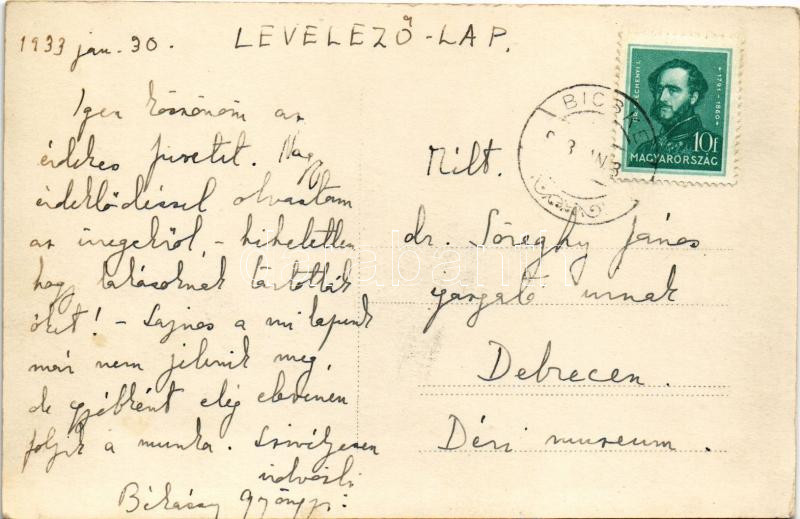 1933 jan. 30.
LEVELEZŐ-LAP.
Igen köszönöm az
érdekes füzetet. Nagy
érdeklődéssel olvastam
az üvegekről, - hihetetlen
hogy lakásoknak tartották
őket! - Sajnos a mi lapunk
már nem jelenik meg,
de egyébként elég elevenen
folyik a munka. Szivélyesen
üdvözli
Békássy Gyöngyi
SZÉCHENYI I.
1791-1860
10f
MAGYARORSZÁG
BICSKE
Mélt.
dr. Söreghy János
igazgató urnak
Debrecen.
Déri muzeum.